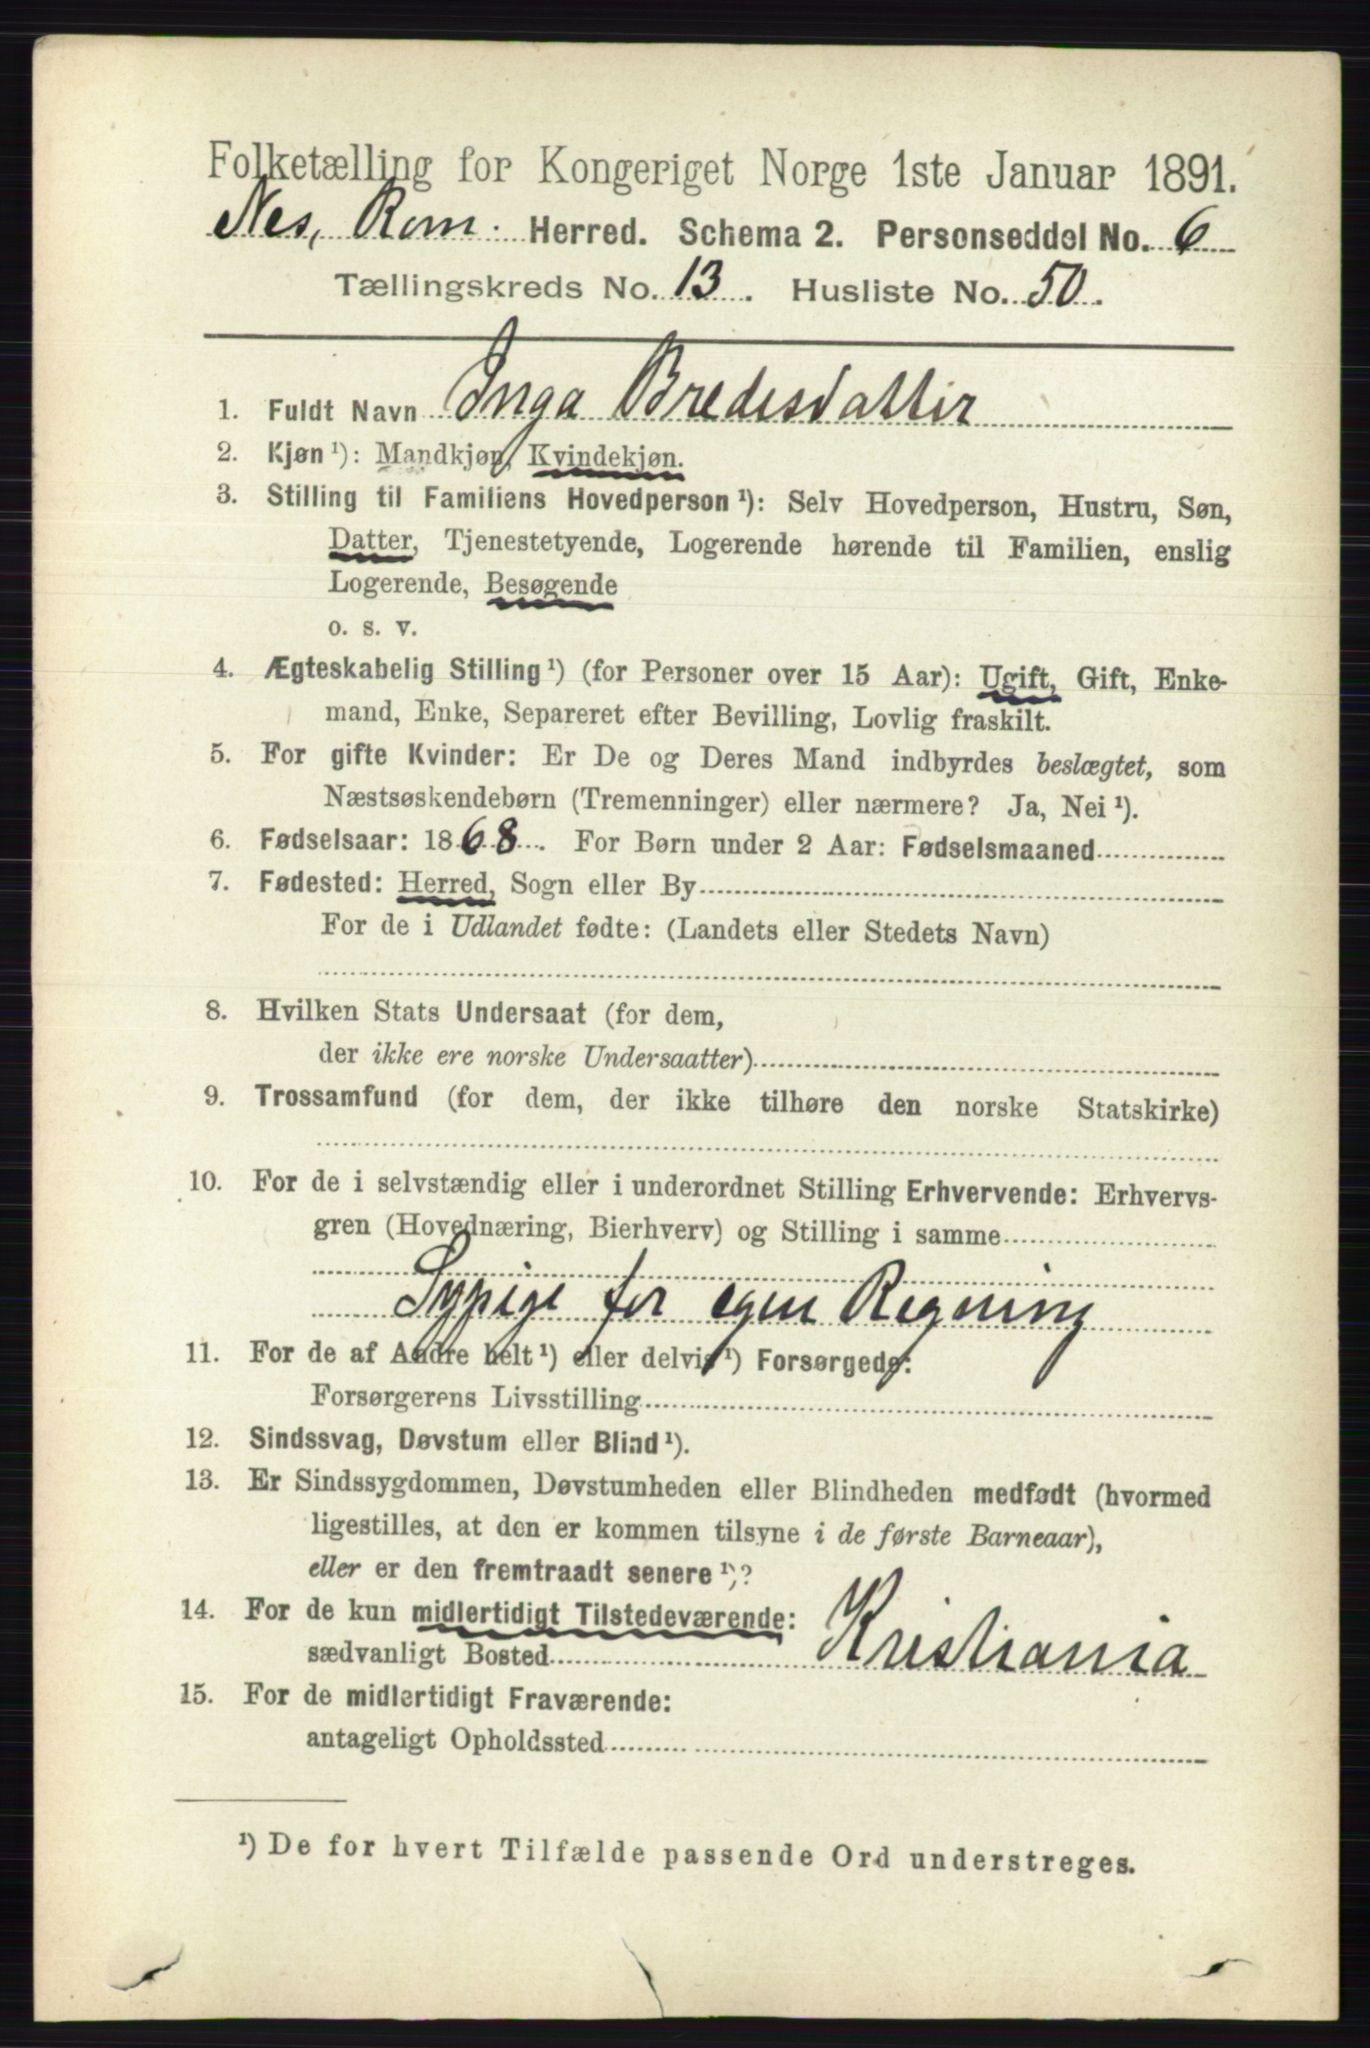 Folketælling for Kongeriget Norge 1ste Januar 1891.
Nes, Rom. Herred. Schema 2. Personseddel No. 6
Tællingskreds No. 13. Husliste No. 50.
1. Fuldt Navn Inga Bredesdatter
2. Kjøn ¹): Mandkjøn, Kvindekjøn.
3. Stilling til Familiens Hovedperson ¹): Selv Hovedperson, Hustru, Søn,
Datter, Tjenestetyende, Logerende hørende til Familien, enslig
Logerende, Besøgende
o. s. v.
4. Ægteskabelig Stilling ¹) (for Personer over 15 Aar): Ugift, Gift, Enke-
mand, Enke, Separeret efter Bevilling, Lovlig fraskilt.
5. For gifte Kvinder: Er De og Deres Mand indbyrdes beslægtet, som
Næstsøskendebørn (Tremenninger) eller nærmere? Ja, Nei ¹).
6. Fødselsaar: 1868. For Børn under 2 Aar: Fødselsmaaned
7. Fødested: Herred, Sogn eller By
For de i Udlandet fødte: (Landets eller Stedets Navn)
8. Hvilken Stats Undersaat (for dem,
der ikke ere norske Undersaatter)
9. Trossamfund (for dem, der ikke tilhøre den norske Statskirke)
10. For de i selvstændig eller i underordnet Stilling Erhvervende: Erhvervs-
gren (Hovednæring, Bierhverv) og Stilling i samme
Sypige for egen Regning
11. For de af Andre helt ¹) eller delvis ¹) Forsørgede:
Forsørgerens Livsstilling
12. Sindssvag, Døvstum eller Blind ¹).
13. Er Sindssygdommen, Døvstumheden eller Blindheden medfødt (hvormed
ligestilles, at den er kommen tilsyne i de første Barneaar),
eller er den fremtraadt senere ¹)?
14. For de kun midlertidigt Tilstedeværende:
sædvanligt Bosted Kristiania
15. For de midlertidigt Fraværende:
antageligt Opholdssted
¹) De for hvert Tilfælde passende Ord understreges.